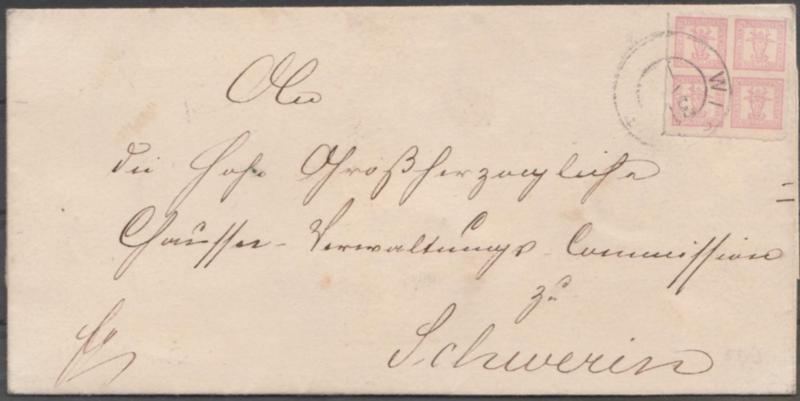 An
WI
die hohe Großherzogliche
Chaussee-Verwaltungs-Commission
zu
Schwerin